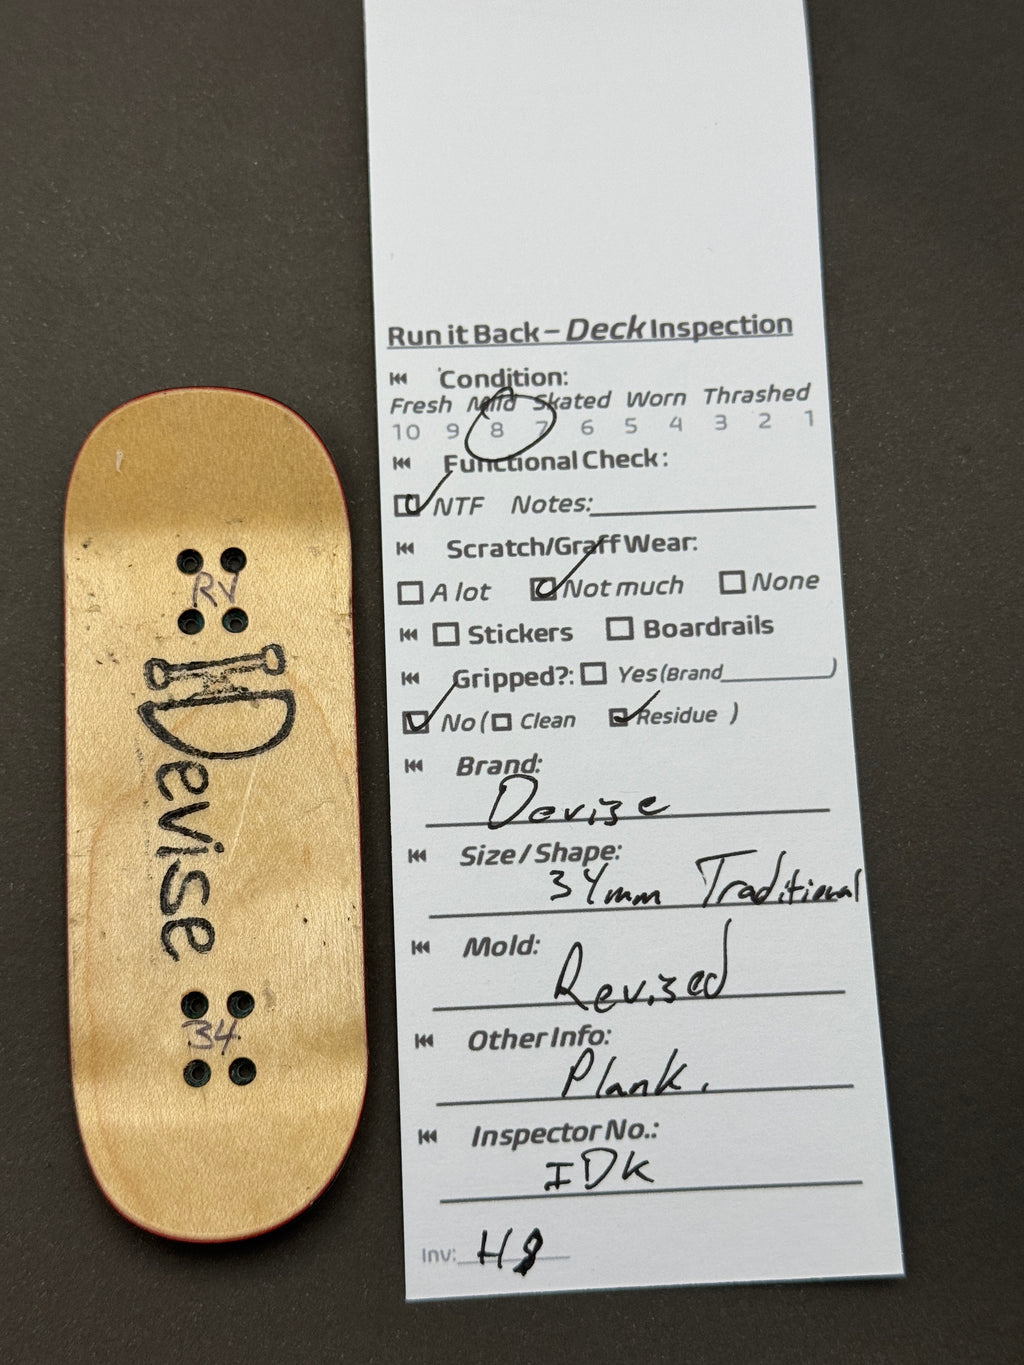 Run it Back – Deck Inspection
Condition:
Fresh Mild Skated Worn Thrashed
10 9 8 7 6 5 4 3 2 1
Functional Check:
NTF Notes:
Scratch/Graff Wear:
A lot Not much None
Stickers Boardrails
Gripped?: Yes (Brand )
No ( Clean Residue )
Brand:
Devise
Size / Shape:
34mm Traditional
Mold:
Revised
Other Info:
Plank.
Inspector No.:
IDK
Inv: H8
RV
Devise
34